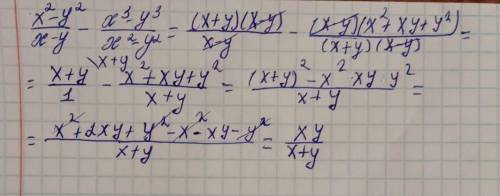 (x²-y²)/(x-y) - (x³-y³)/(x²-y²) = ((x+y)(x-y))/(x-y) - ((x-y)(x²+xy+y²))/((x+y)(x-y)) =
= (x+y)/1 \x+y - (x²+xy+y²)/(x+y) = ((x+y)²-x² xy y²)/(x+y) =
= (x²+2xy+y²-x²-xy-y²)/(x+y) = xy/(x+y)